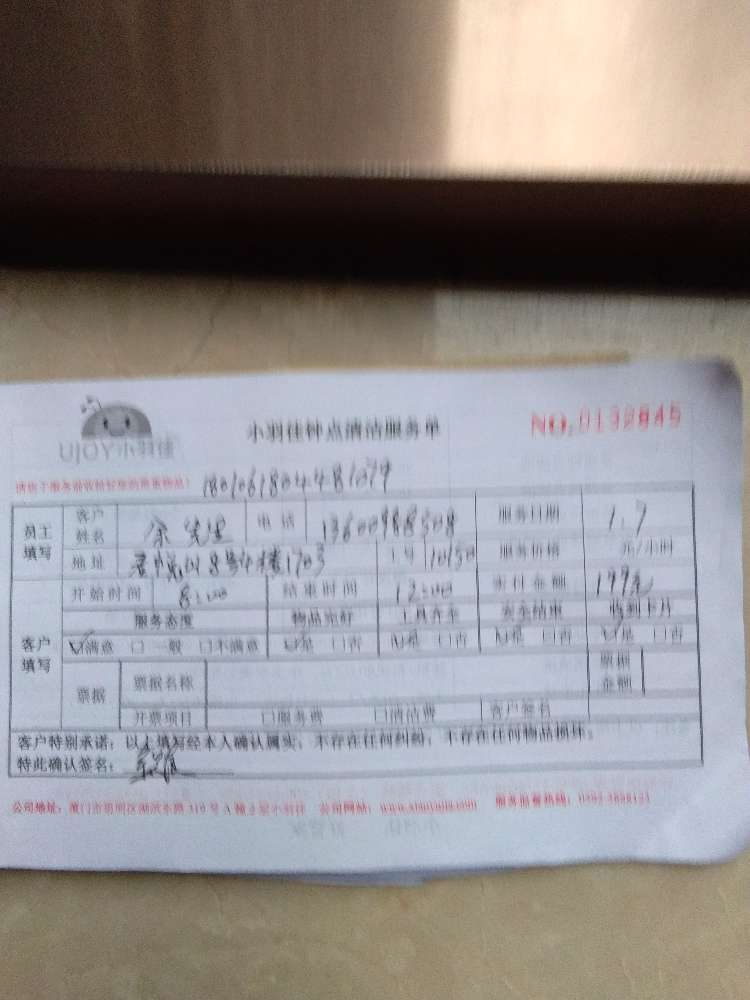 UJOY小羽佳
小羽佳钟点清洁服务单
NO. 0132645
1801061804481079
员工填写
客户姓名 余先生 电话 13600988508 服务日期 1.7
地址 8号楼1703 工号 10150 服务价格 元/小时
客户填写
开始时间 8:00 结束时间 12:00 实付金额 199元
服务态度 物品完好 工具齐全 安全结束 收到卡片
☑满意 口一般 口不满意 ☑是 口否 ☑是 口否 ☑是 口否 ☑是 口否
票据 票据名称 票据金额
开票项目 口服务费 口清洁费 客户签名
客户特别承诺:以上填写经本人确认属实,不存在任何纠纷,不存在任何物品损坏。
特此确认签名:
公司地址:厦门市思明区湖滨东路319号A幢2层小羽佳 公司网站: 服务监督热线: